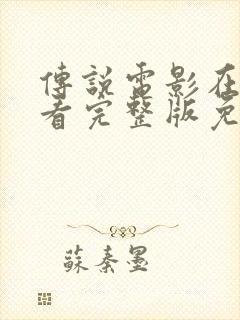 傳說電影在
看完整版免
蘇秦墨